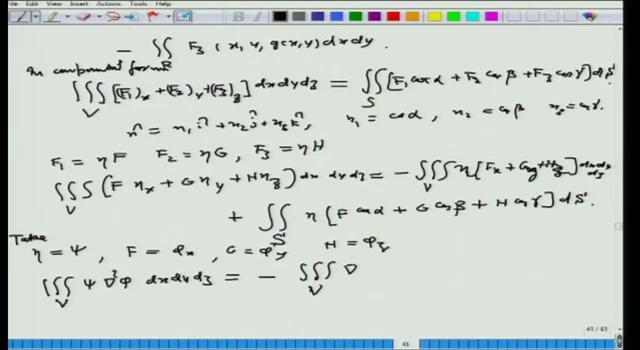 File Edit View Insert Actions Tools Help
- ∬_R F₃(x, y, g(x,y)) dx dy.
In component form
∭_V [(F₁)_x + (F₂)_y + (F₃)_z] dx dy dz = ∬_S [F₁ cos α + F₂ cos β + F₃ cos γ] dS
n̂ = n₁ î + n₂ ĵ + n₃ k̂, n₁ = cos α, n₂ = cos β n₃ = cos γ.
F₁ = ηF F₂ = ηG, F₃ = ηH
∭_V (F η_x + G η_y + H η_z) dx dy dz = - ∭_V η [F_x + G_y + H_z] dx dy dz
+ ∬_S η [F cos α + G cos β + H cos γ] dS.
Take
η = ψ, F = φ_x, G = φ_y H = φ_z
∭_V ψ ∇²φ dx dy dz = - ∭_V ∇
41 / 61
41